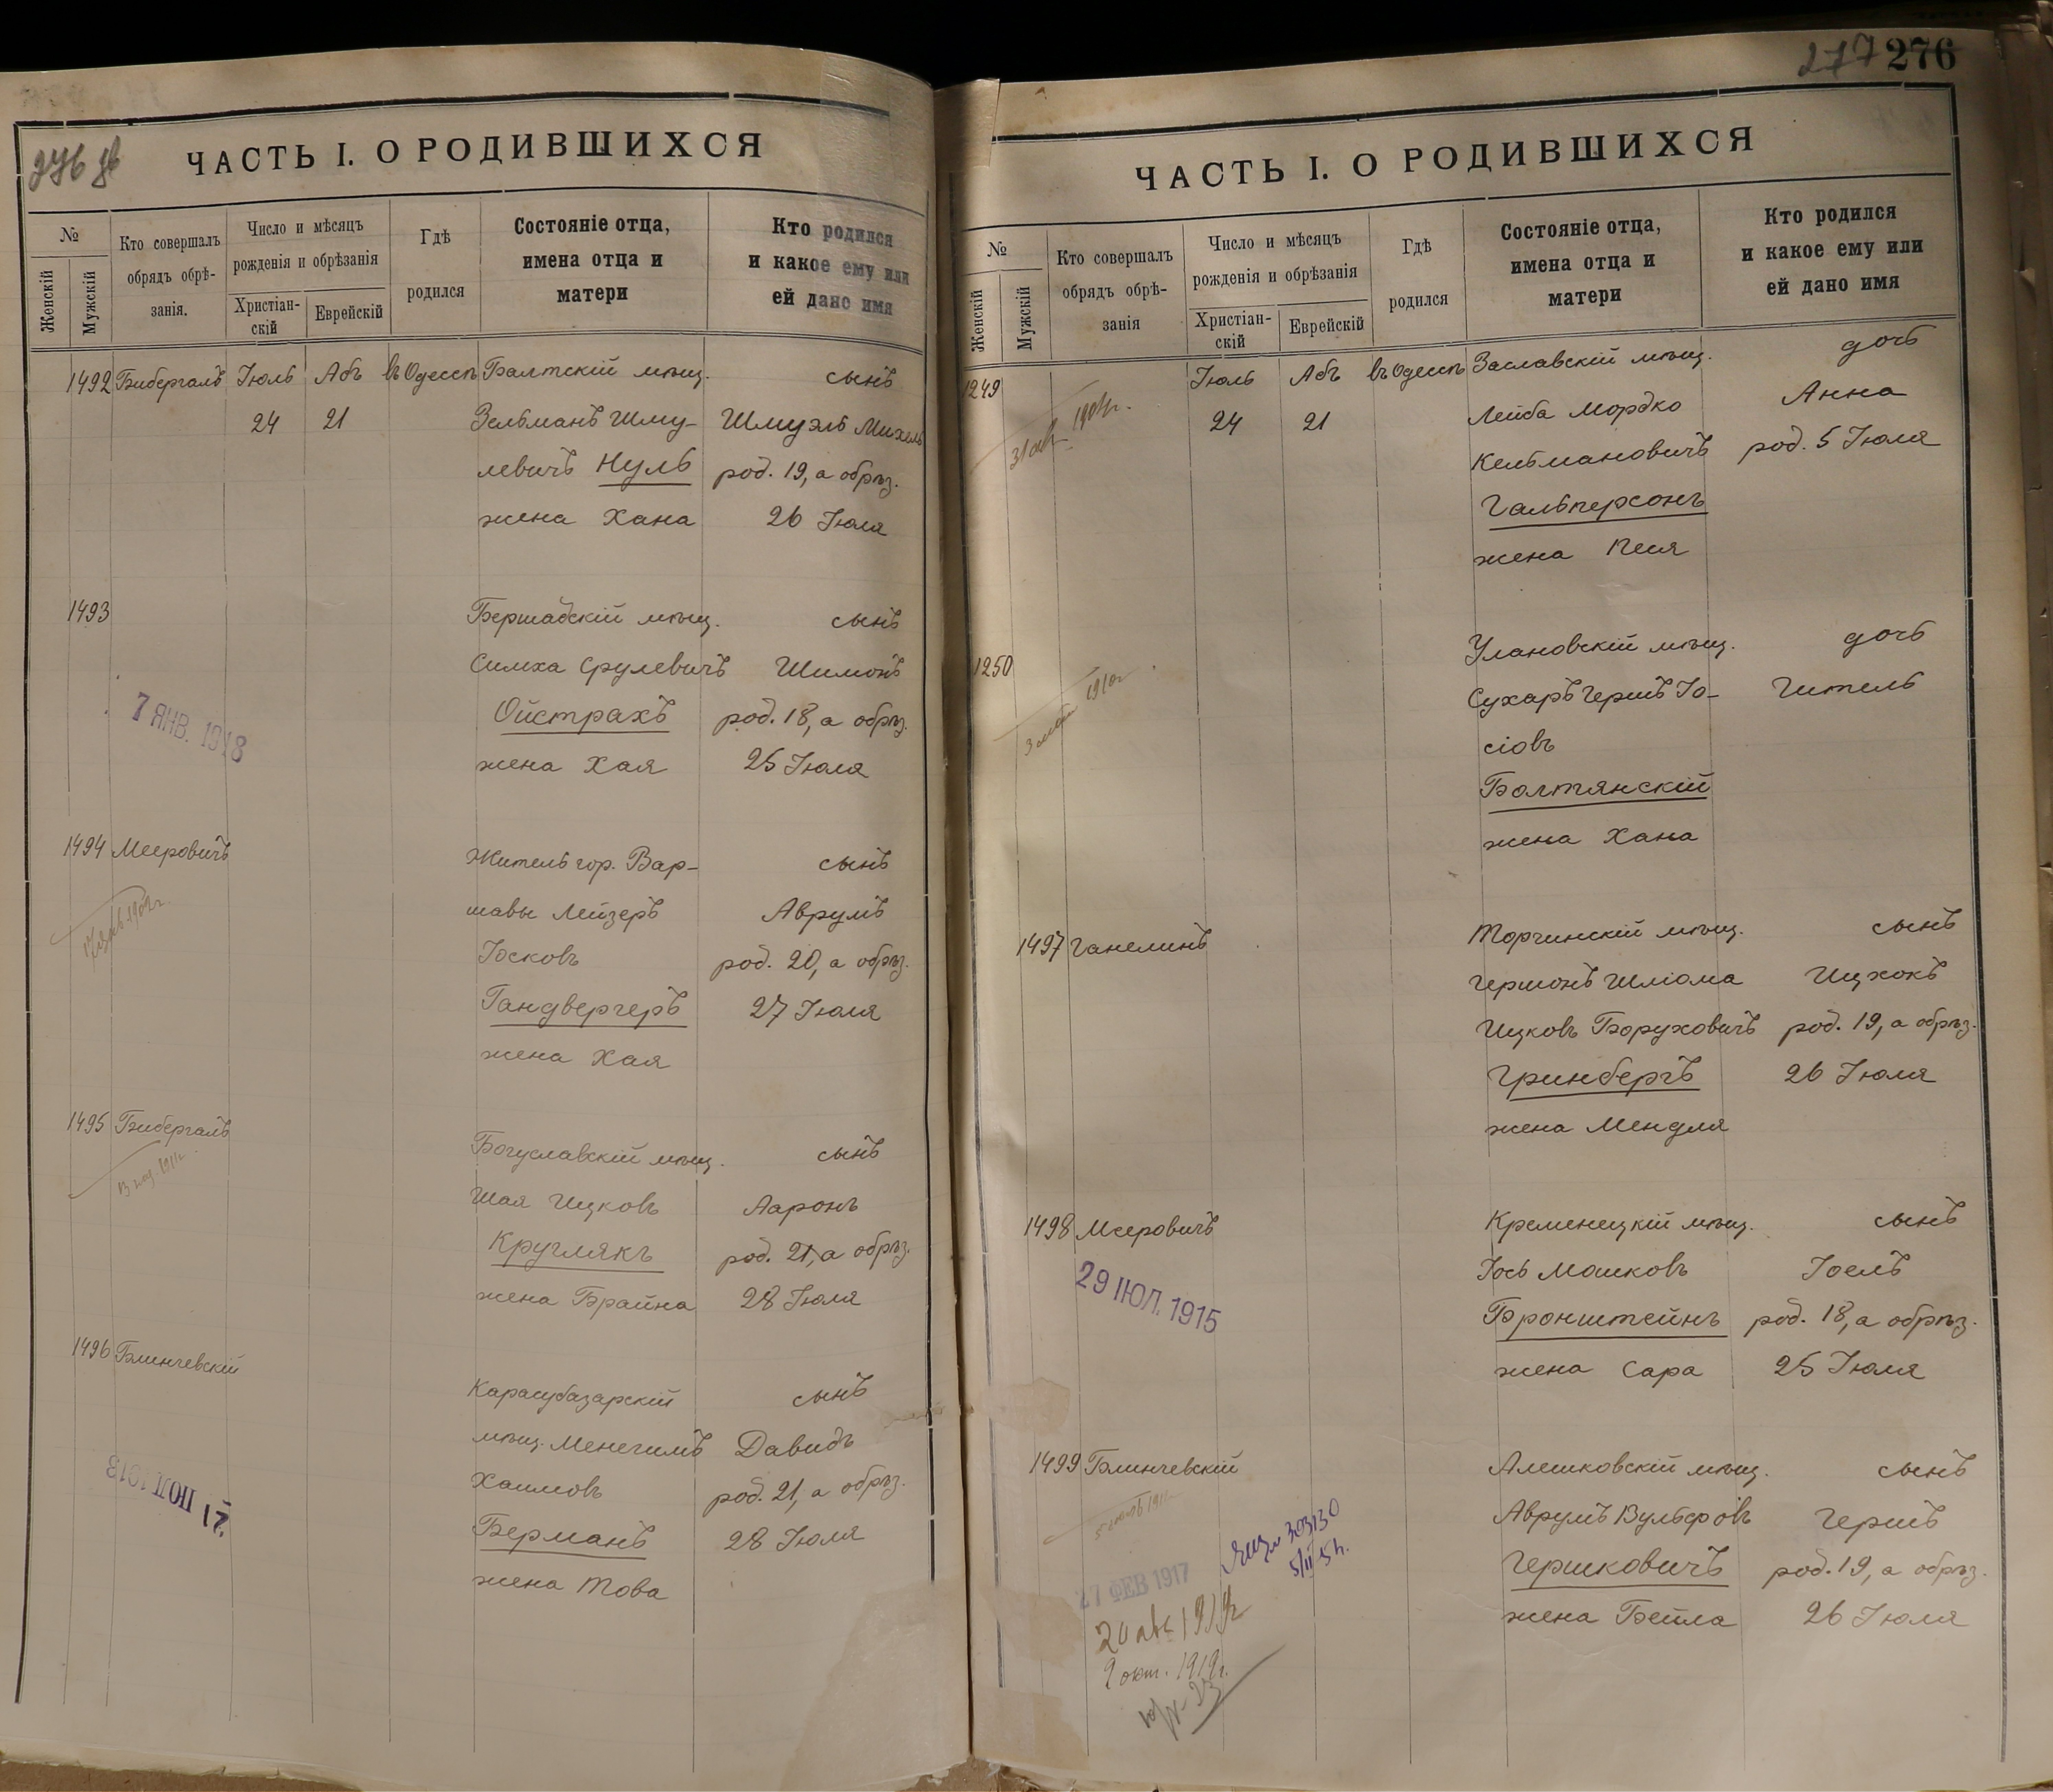 276 об
ЧАСТЬ I. О РОДИВШИХСЯ
№
Женскій
Мужскій
Кто совершалъ
обрядъ обрѣ-
занія.
Число и мѣсяцъ
рожденія и обрѣзанія
Христіан-
скій
Еврейскій
Гдѣ
родился
Состояніе отца,
имена отца и
матери
Кто родился
и какое ему или
ей дано имя
1492 Бибергалъ Іюль Абъ въ Одессѣ Балтскій мѣщ. сынъ
24 21 Зельманъ Шму- Шмуэль Михель
левичъ Нуль род. 19, а обрѣз.
жена Хана 26 Іюля
1493 Бершадскій мѣщ. сынъ
Симха Срулевичъ Шимонъ
Ойстрахъ род. 18, а обрѣз.
7 ЯНВ. 1918
жена Хая 25 Іюля
1494 Мееровичъ Житель гор. Вар- сынъ
шавы Лейзеръ Аврумъ
Іосковъ род. 20, а обрѣз.
Гандвергеръ 27 Іюля
жена Хая
1495 Бибергалъ Богуславскій мѣщ. сынъ
Шая Ицковъ Ааронъ
Круглякъ род. 21, а обрѣз.
жена Брайна 28 Іюля
1496 Блинчевскій Карасубазарскій сынъ
мѣщ. Менегимъ Давидъ
Хаимовъ род. 21, а обрѣз.
17 ІЮЛ 1913
Берманъ 28 Іюля
жена Това
277 276
ЧАСТЬ I. О РОДИВШИХСЯ
№
Женскій
Мужскій
Кто совершалъ
обрядъ обрѣ-
занія
Число и мѣсяцъ
рожденія и обрѣзанія
Христіан-
скій
Еврейскій
Гдѣ
родился
Состояніе отца,
имена отца и
матери
Кто родился
и какое ему или
ей дано имя
1249 Іюль Абъ въ Одессѣ Заславскій мѣщ. дочь
24 21 Лейба Мордко Анна
Кельмановичъ род. 5 Іюля
Гальперсонъ
жена Песя
1250 Улановскій мѣщ. дочь
Сухаръ Гершъ Іо- Гитель
сіовъ
Болтянскій
жена Хана
1497 Ганелинъ Торчинскій мѣщ. сынъ
Гершонъ Шліома Ицхокъ
Ицковъ Боруховичъ род. 19, а обрѣз.
Гринбергъ 26 Іюля
жена Мендля
1498 Мееровичъ Кременецкій мѣщ. сынъ
Іось Мошковъ Іоель
29 ІЮЛ. 1915
Бронштейнъ род. 18, а обрѣз.
жена Сара 25 Іюля
1499 Блинчевскій Алешковскій мѣщ. сынъ
Аврумъ Вульфовъ Гершъ
Гершковичъ род. 19, а обрѣз.
жена Бейла 26 Іюля
303130
27 ФЕВ 1917
9 окт. 1919г.